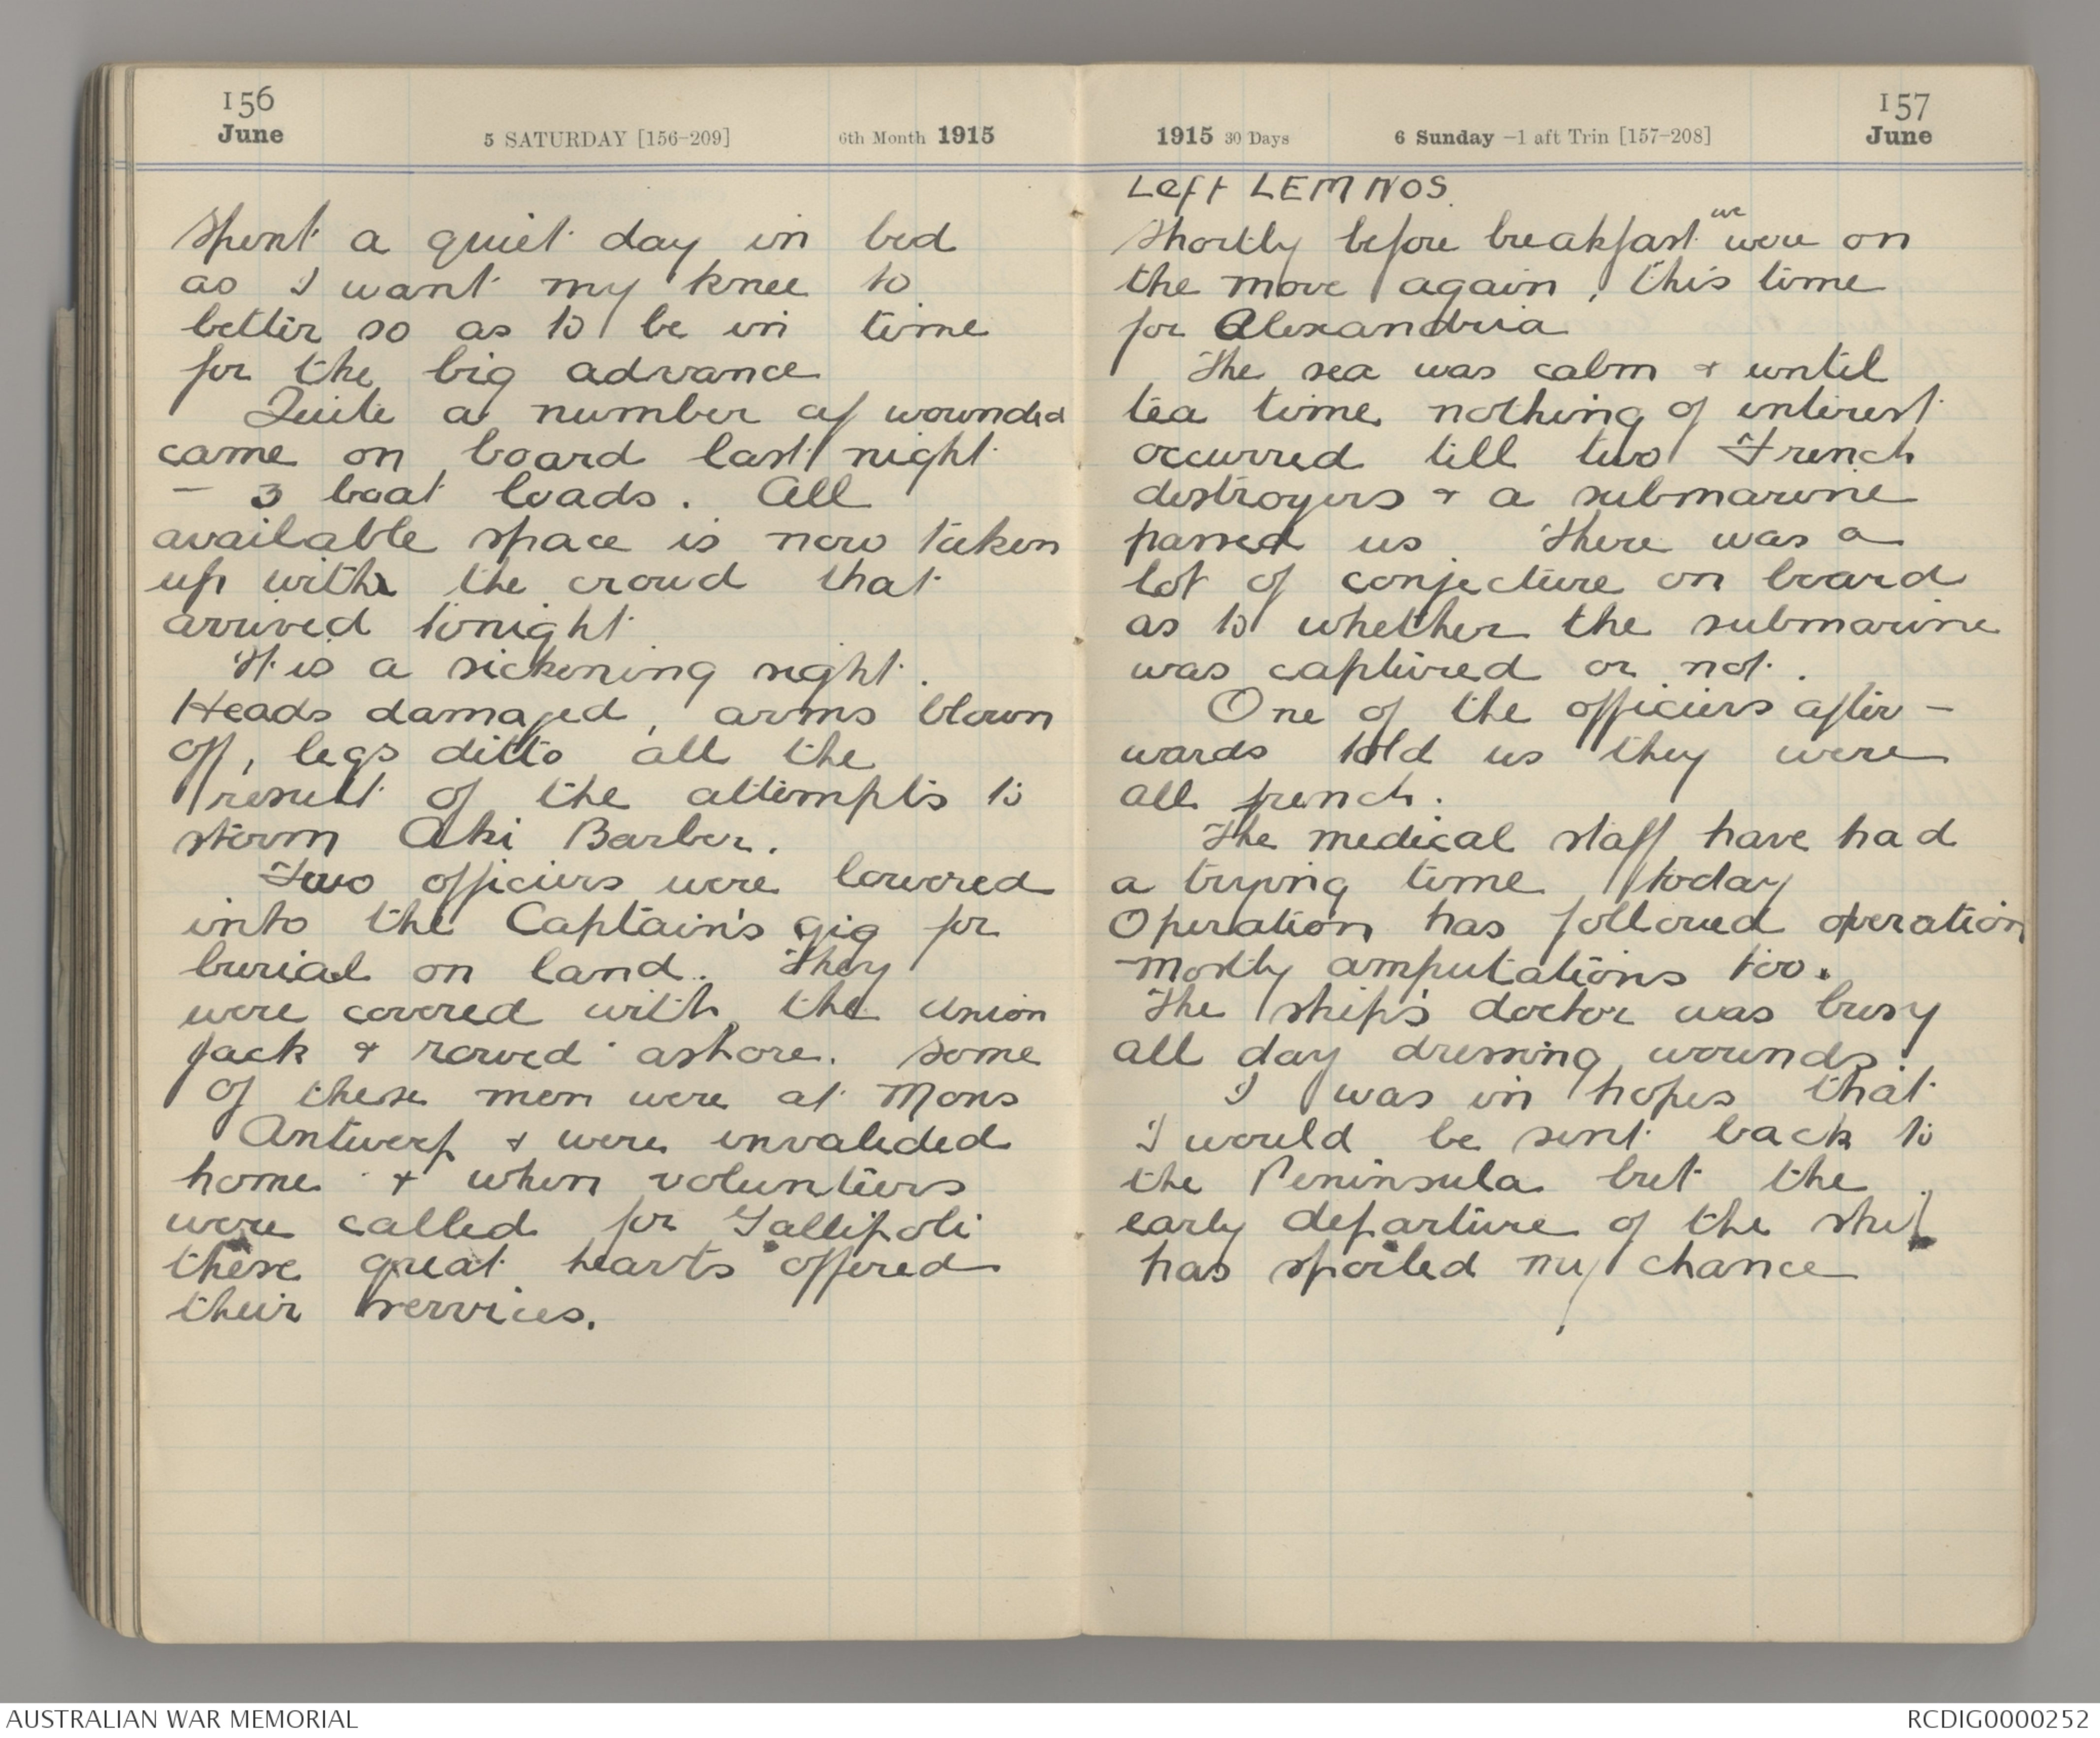 156
June
5 SATURDAY [156-209]
6th Month 1915
Spent a quiet day in bed
as I want my knee to
better so as to be in time
for the big advance
Quite a number of wounded
came on board last night
- 3 boat loads. All
available space is now taken
up with the crowd that
arrived tonight
It is a sickening sight.
Heads damaged, arms blown
off, legs ditto all the
result of the attempts to
storm Aki Barber.
Two officiers were lowered
into the Captain's gig for
burial on land. They
were covered with the Union
Jack & rowed ashore. Some
of these men were at Mons
Antwerp & were invalided
home & when volunteers
were called for Gallipoli
these great hearts offered
their services.
1915 30 Days
6 Sunday -1 aft Trin [157-208]
157
June
Left LEMNOS.
Shortly before breakfast we were on
the move again, this time
for Alexandria
The sea was calm & until
tea time nothing of interest
occurred till two French
destroyers & a submarine
passed us. There was a
lot of conjecture on board
as to whether the submarine
was captured or not.
One of the officiers after-
wards told us they were
all french.
The medical staff have had
a trying time today
Operation has followed operation
mostly amputations too.
The ship's doctor was busy
all day dressing wounds.
I was in hopes that
I would be sent back to
the Peninsula but the
early departure of the ship
has spoiled my chance
AUSTRALIAN WAR MEMORIAL
RCDIG0000252